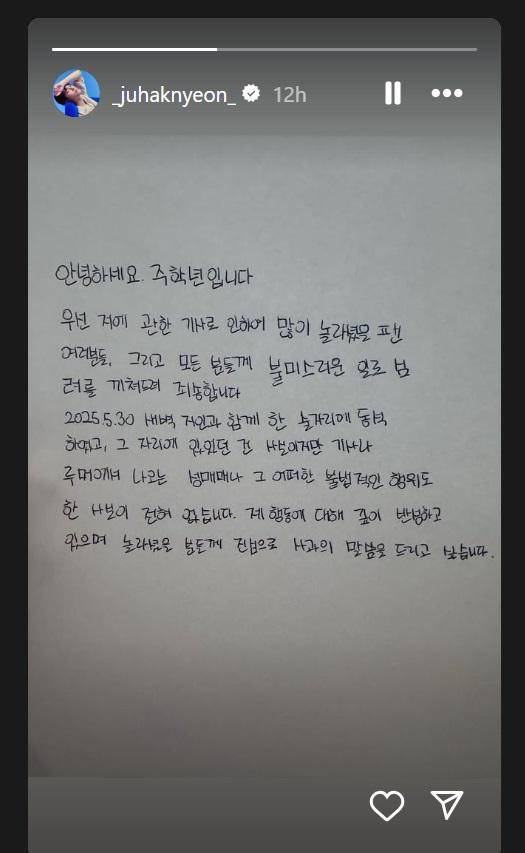 _juhaknyeon_ 12h
안녕하세요. 주학년입니다
우선 저에 관한 기사로 인하여 많이 놀라셨을 팬
여러분들, 그리고 모든 분들께 불미스러운 일로 심
려를 끼쳐드려 죄송합니다
2025.5.30 새벽 지인과 함께 한 술자리에 동석
하였고, 그 자리에 있었던 건 사실이지만 기사나
루머에서 나오는 성매매나 그 어떠한 불법적인 행위도
한 사실이 전혀 없습니다. 제 행동에 대해 깊이 반성하고
있으며 놀라셨을 분들께 진심으로 사과의 말씀을 드리고 싶습니다.